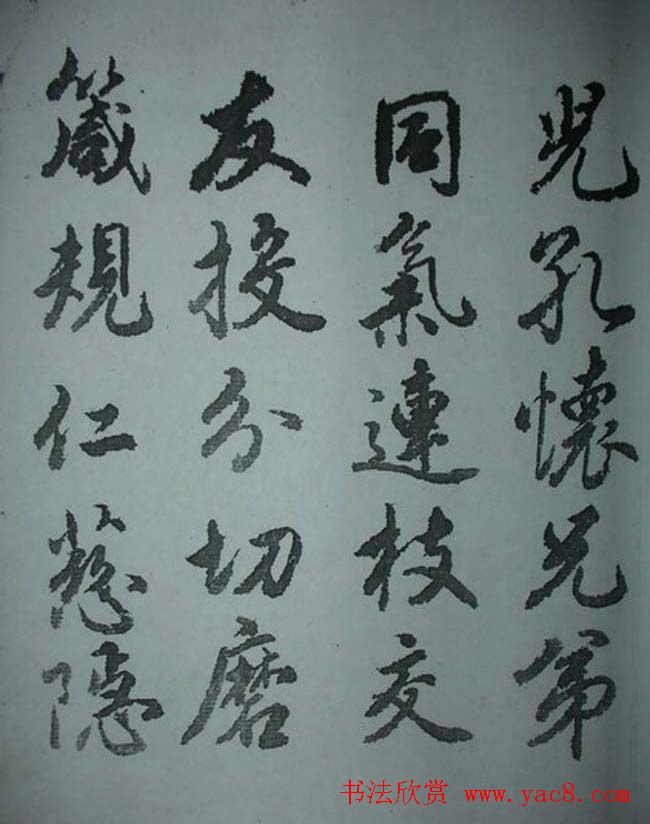 兒孔懷兄弟
同氣連枝交
友投分切磨
箴規仁慈隱
书法欣赏 www.yac8.com